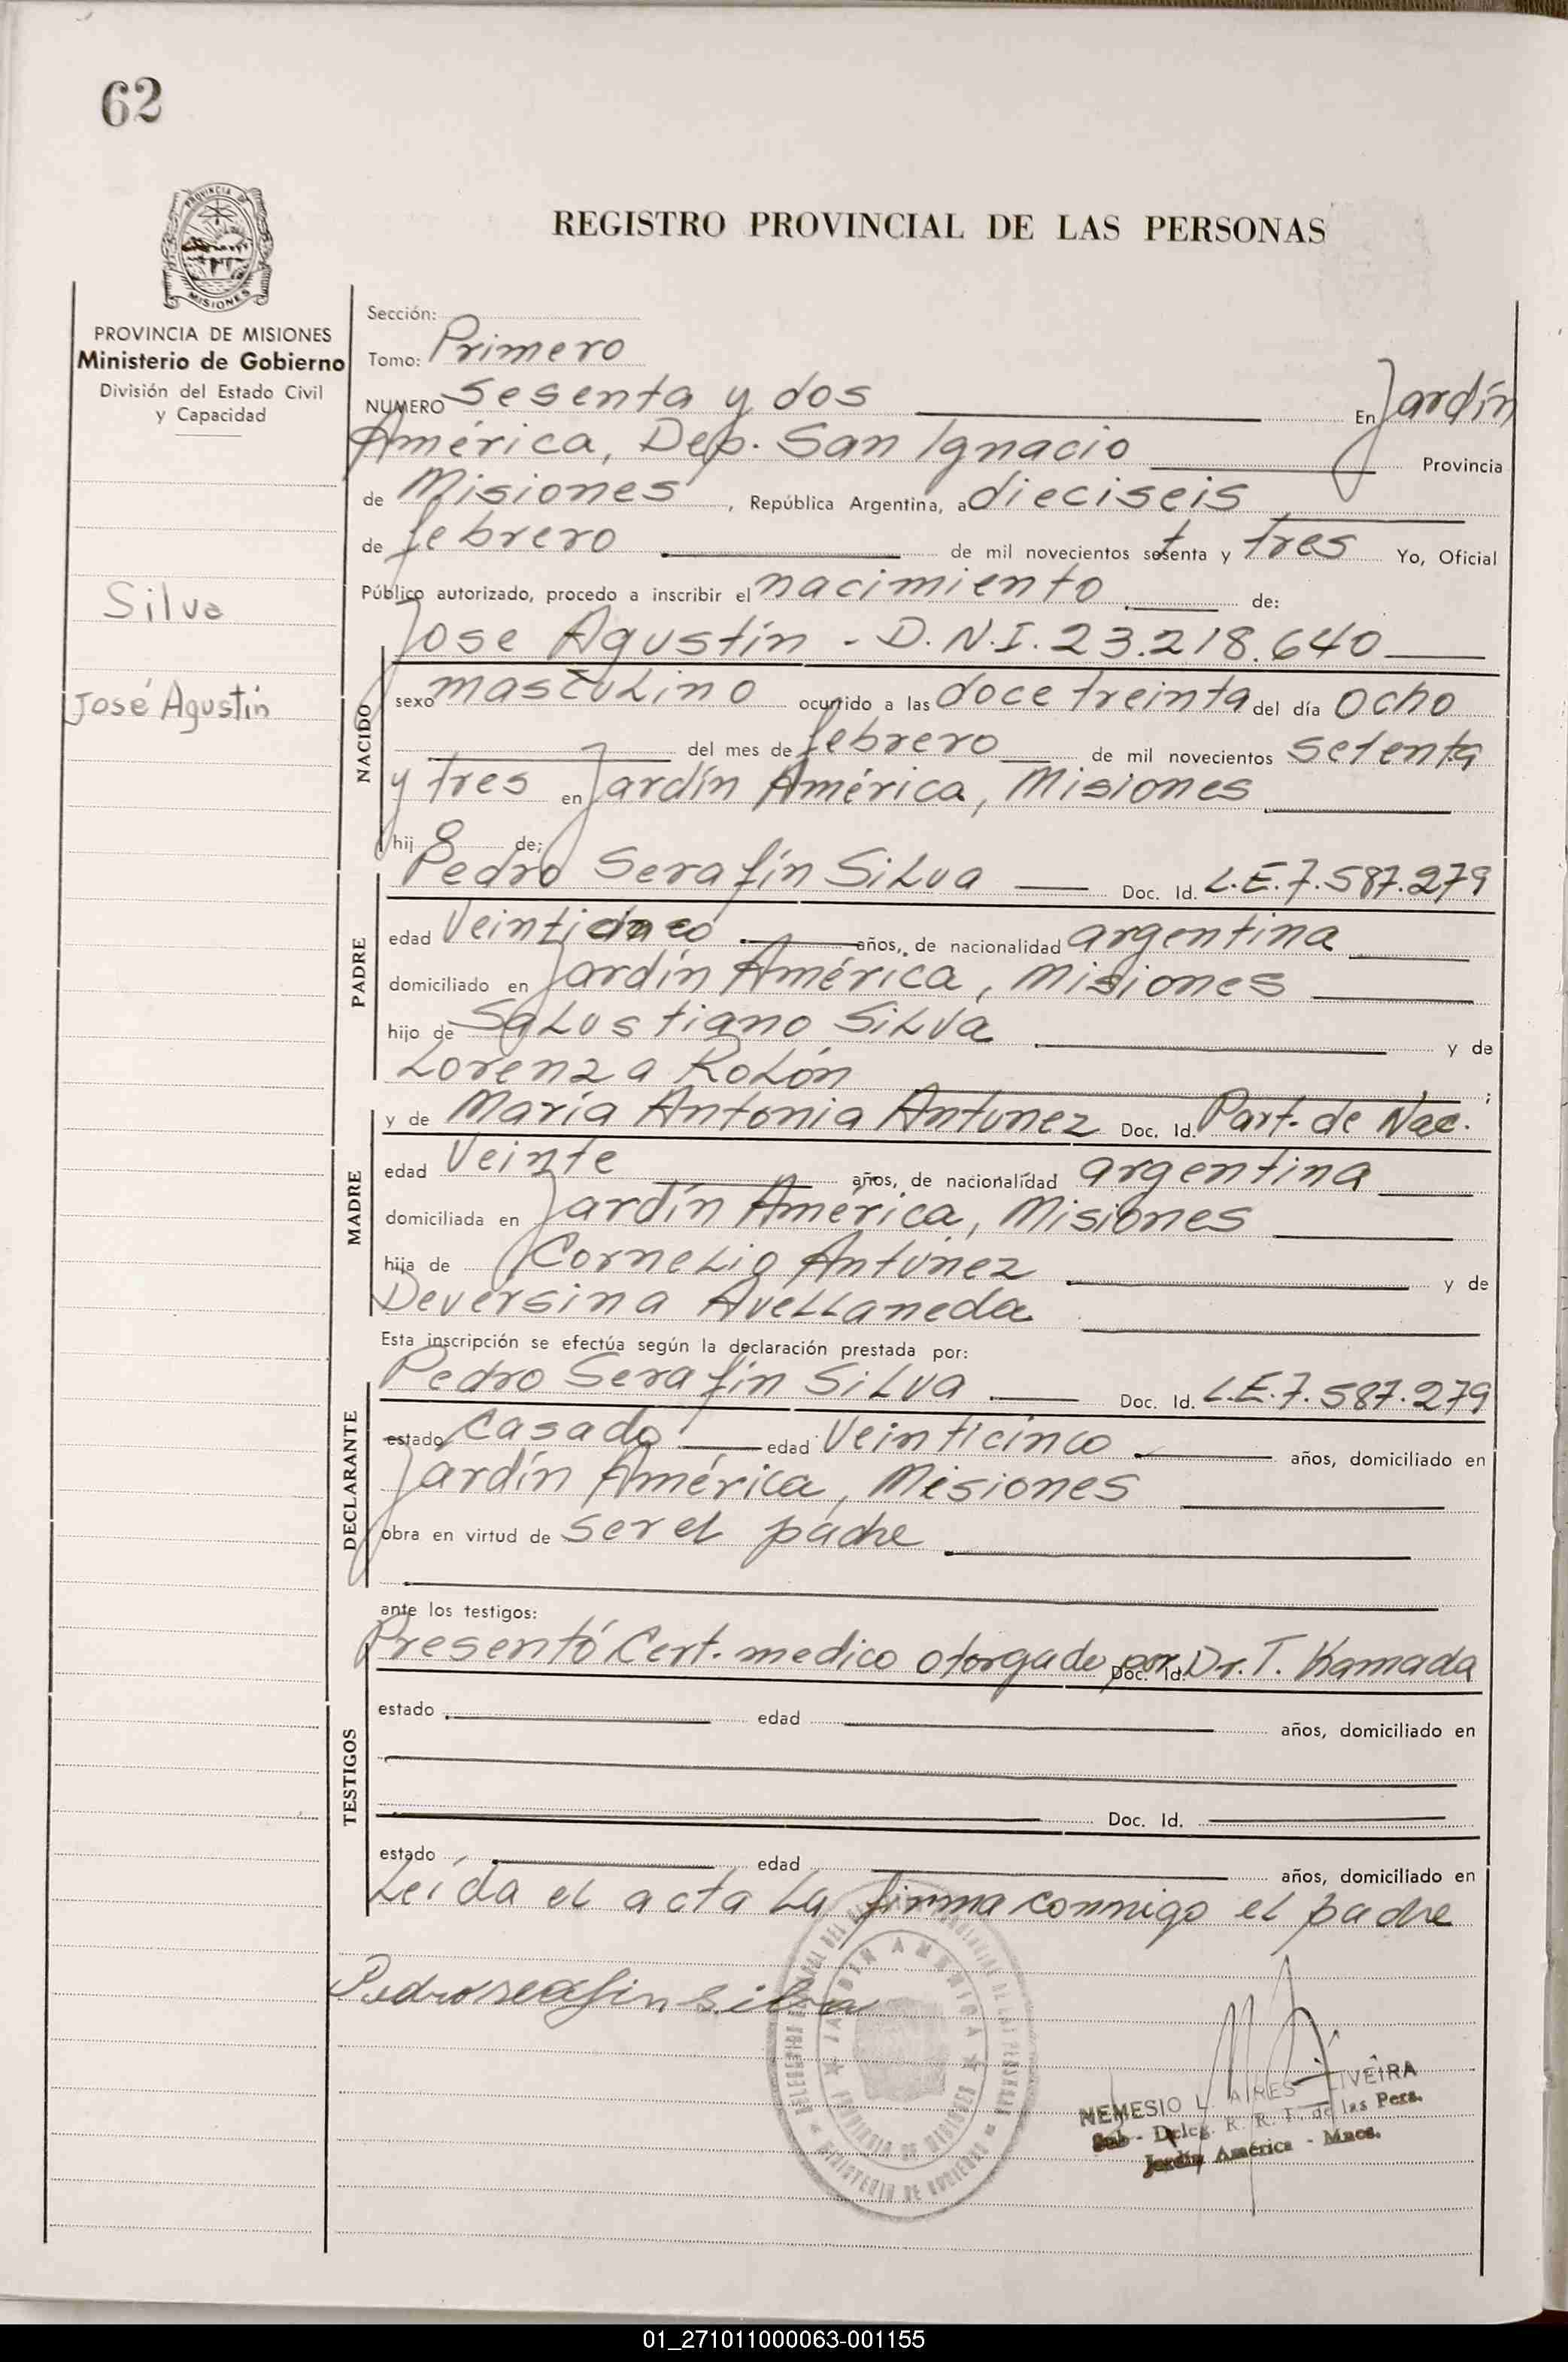 62
PROVINCIA DE
MISIONES
PROVINCIA DE MISIONES
Ministerio de Gobierno
División del Estado Civil
y Capacidad
Silva
José Agustín
REGISTRO PROVINCIAL DE LAS PERSONAS
Sección:
Tomo: Primero
NUMERO Sesenta y dos En Jardín
América, Dep. San Ignacio Provincia
de Misiones, República Argentina, a dieciseis
de febrero de mil novecientos setenta y tres Yo, Oficial
Público autorizado, procedo a inscribir el nacimiento de:
Jose Agustín - D.N.I. 23.218.640
NACIDO
sexo masculino ocurrido a las doce treinta del día ocho
del mes de febrero de mil novecientos setenta
y tres en Jardín América, Misiones
hijo de:
Pedro Serafín Silva Doc. Id. L.E. 7.587.279
PADRE
edad Veinticinco años, de nacionalidad argentina
domiciliado en Jardín América, Misiones
hijo de Salustiano Silva y de
Lorenza Rolón ;
y de María Antonia Antunez Doc. Id. Part. de Nac.
MADRE
edad Veinte años, de nacionalidad argentina
domiciliada en Jardín América, Misiones
hija de Cornelio Antúnez y de
Deversina Avellaneda
Esta inscripción se efectúa según la declaración prestada por:
Pedro Serafín Silva Doc. Id. L.E. 7.587.279
DECLARANTE
estado casado edad Veinticinco años, domiciliado en
Jardín América, Misiones
obra en virtud de ser el padre
ante los testigos:
Presentó Cert. medico otorgado por Doc. Id. Dr. T. Kamada
TESTIGOS
estado edad años, domiciliado en
Doc. Id.
estado edad años, domiciliado en
Leída el acta la firma conmigo el padre
Pedro serafin silva
JARDIN AMERICA
PROVINCIA DE MISIONES
MINISTERIO DE GOBIERNO
NEMESIO L. AIRES OLIVEIRA
Sub - Deleg. R. R. P. de las Pers.
Jardín América - Mnes.
01_271011000063-001155